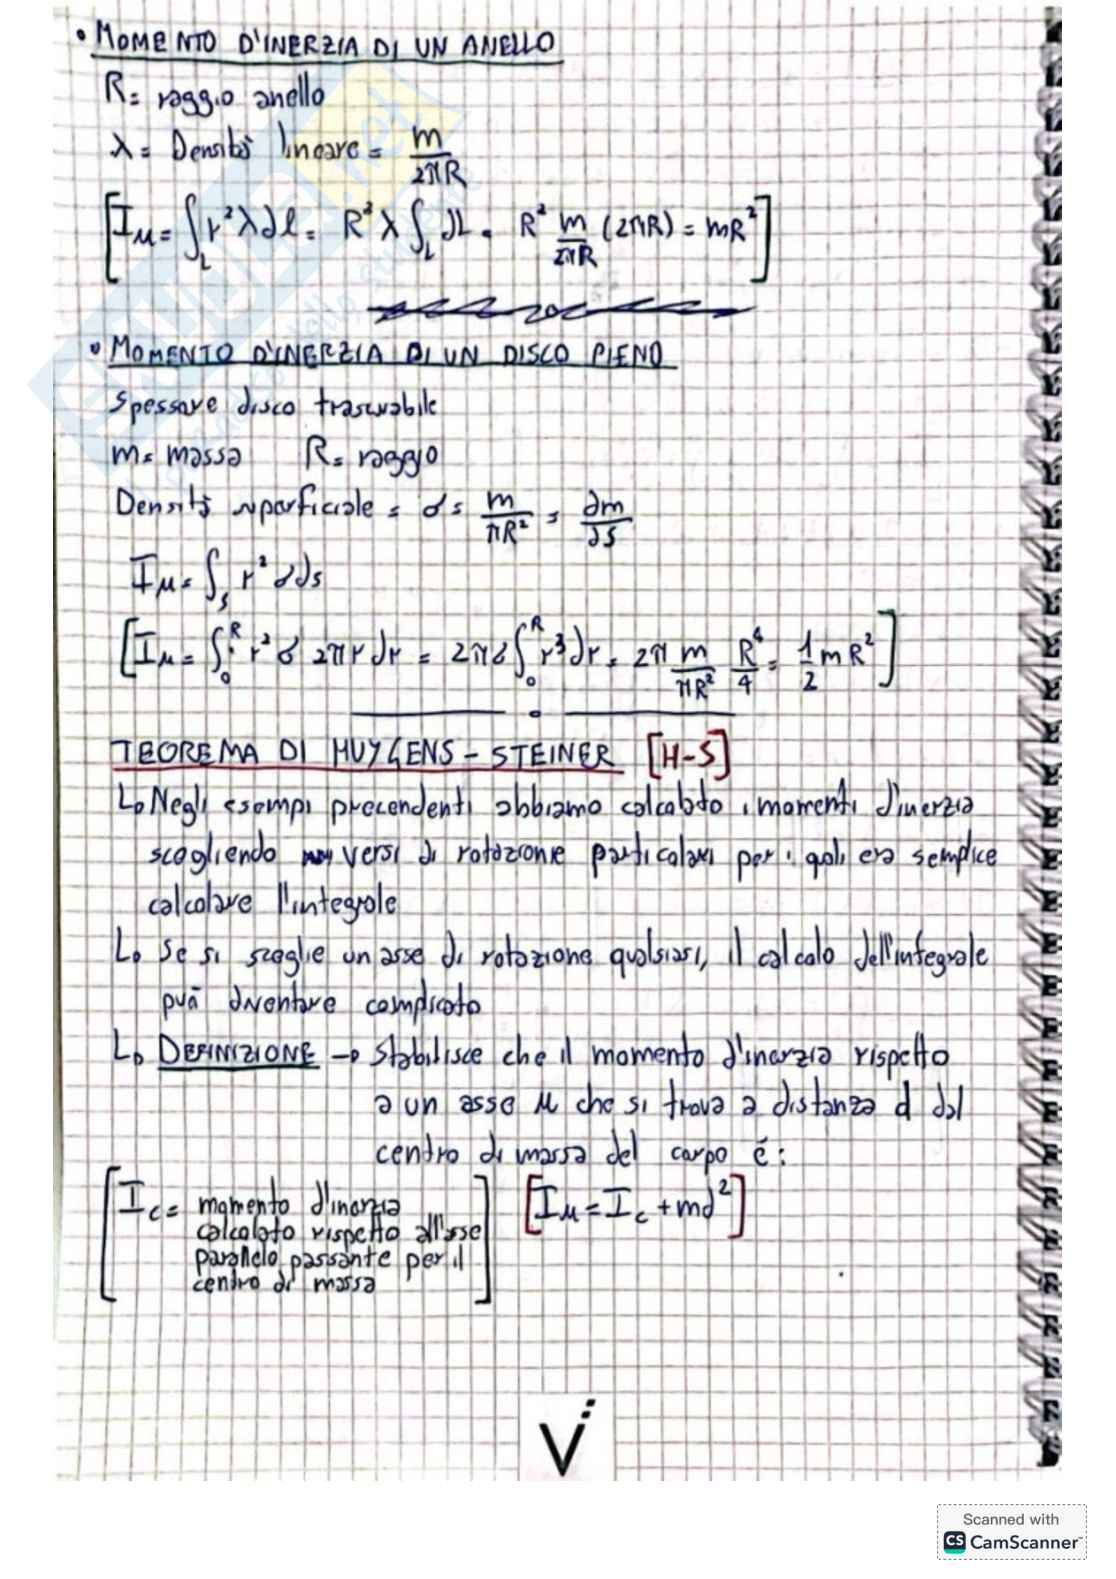 • MOMENTO D'INERZIA DI UN ANELLO
R = raggio anello
λ = Densità lineare = m/2πR
[Iμ = ∫L r² λ dl = R² λ ∫L dL = R² m/2πR (2πR) = mR²]
• MOMENTO D'INERZIA DI UN DISCO PIENO
Spessore disco trascurabile
m = massa R = raggio
Densità superficiale = σ = m/πR² = dm/dS
Iμ = ∫S r² σ ds
[Iμ = ∫₀ᴿ r² σ 2πr dr = 2πσ ∫₀ᴿ r³ dr = 2π m/πR² R⁴/4 = 1/2 m R²]
TEOREMA DI HUYGENS - STEINER [H-S]
↳ Negli esempi precendenti abbiamo calcolato i momenti d'inerzia
scogliendo versi di rotazione particolari per i quali era semplice
calcolare l'integrale
↳ Se si sceglie un asse di rotazione qualsiasi, il calcolo dell'integrale
può diventare complicato
↳ DEFINIZIONE → Stabilisce che il momento d'inerzia rispetto
a un asse μ che si trova a distanza d dal
centro di massa del corpo é:
[Ic = momento d'inerzia
calcolato rispetto all'asse
parallelo passante per il
centro di massa]
[Iμ = Ic + md²]
Vi
Scanned with
CS CamScanner